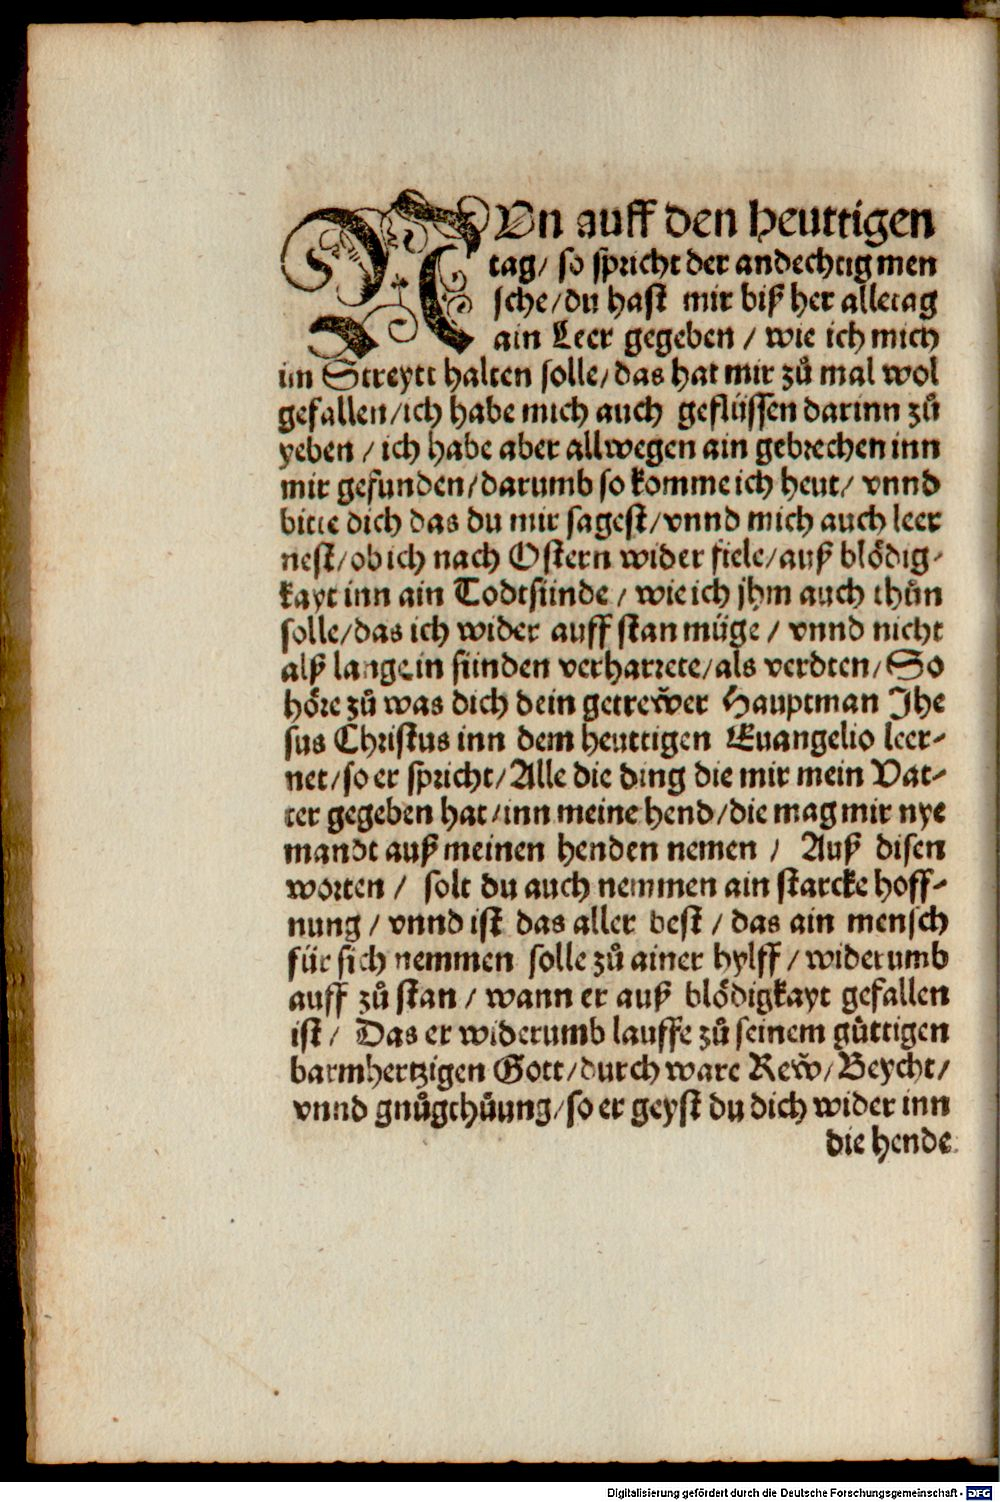 NVn auff den heuttigen
tag/ so spricht der andechtig men
sche/du hast mir biß her alletag
ain Leer gegeben / wie ich mich
im Streytt halten solle/das hat mir zů mal wol
gefallen/ich habe mich auch geflüssen darinn zů
yeben / ich habe aber allwegen ain gebrechen inn
mir gefunden/darumb so komme ich heut/ vnnd
bitte dich das du mir sagest/vnnd mich auch leer
nest/ob ich nach Ostern wider fiele/auß blödig-
kayt inn ain Todtsünde / wie ich jhm auch thůn
solle/das ich wider auff stan müge / vnnd nicht
alß lange in sünden verharrete/als verdten/So
höre zů was dich dein getrewer Hauptman Jhe
sus Christus inn dem heuttigen Euangelio leer-
net/so er spricht/Alle die ding die mir mein Vat-
ter gegeben hat/inn meine hend/die mag mir nye
mandt auß meinen henden nemen / Auß disen
worten / solt du auch nemmen ain starcke hoff-
nung / vnnd ist das aller best / das ain mensch
für sich nemmen solle zů ainer hylff / widerumb
auff zů stan / wann er auß blödigkayt gefallen
ist / Das er widerumb lauffe zů seinem gůttigen
barmhertzigen Gott/durch ware Rew/Beycht/
vnnd gnůgthůung/so er geyst du dich wider inn
die hende
Digitalisierung gefördert durch die Deutsche Forschungsgemeinschaft - DFG